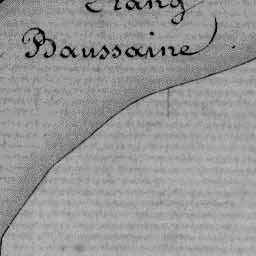 Etang
Baussaine